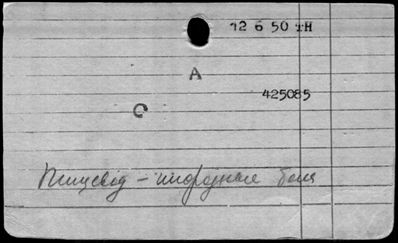 12 6 50 TH
A
425085
C
Пищевод – инородные тела